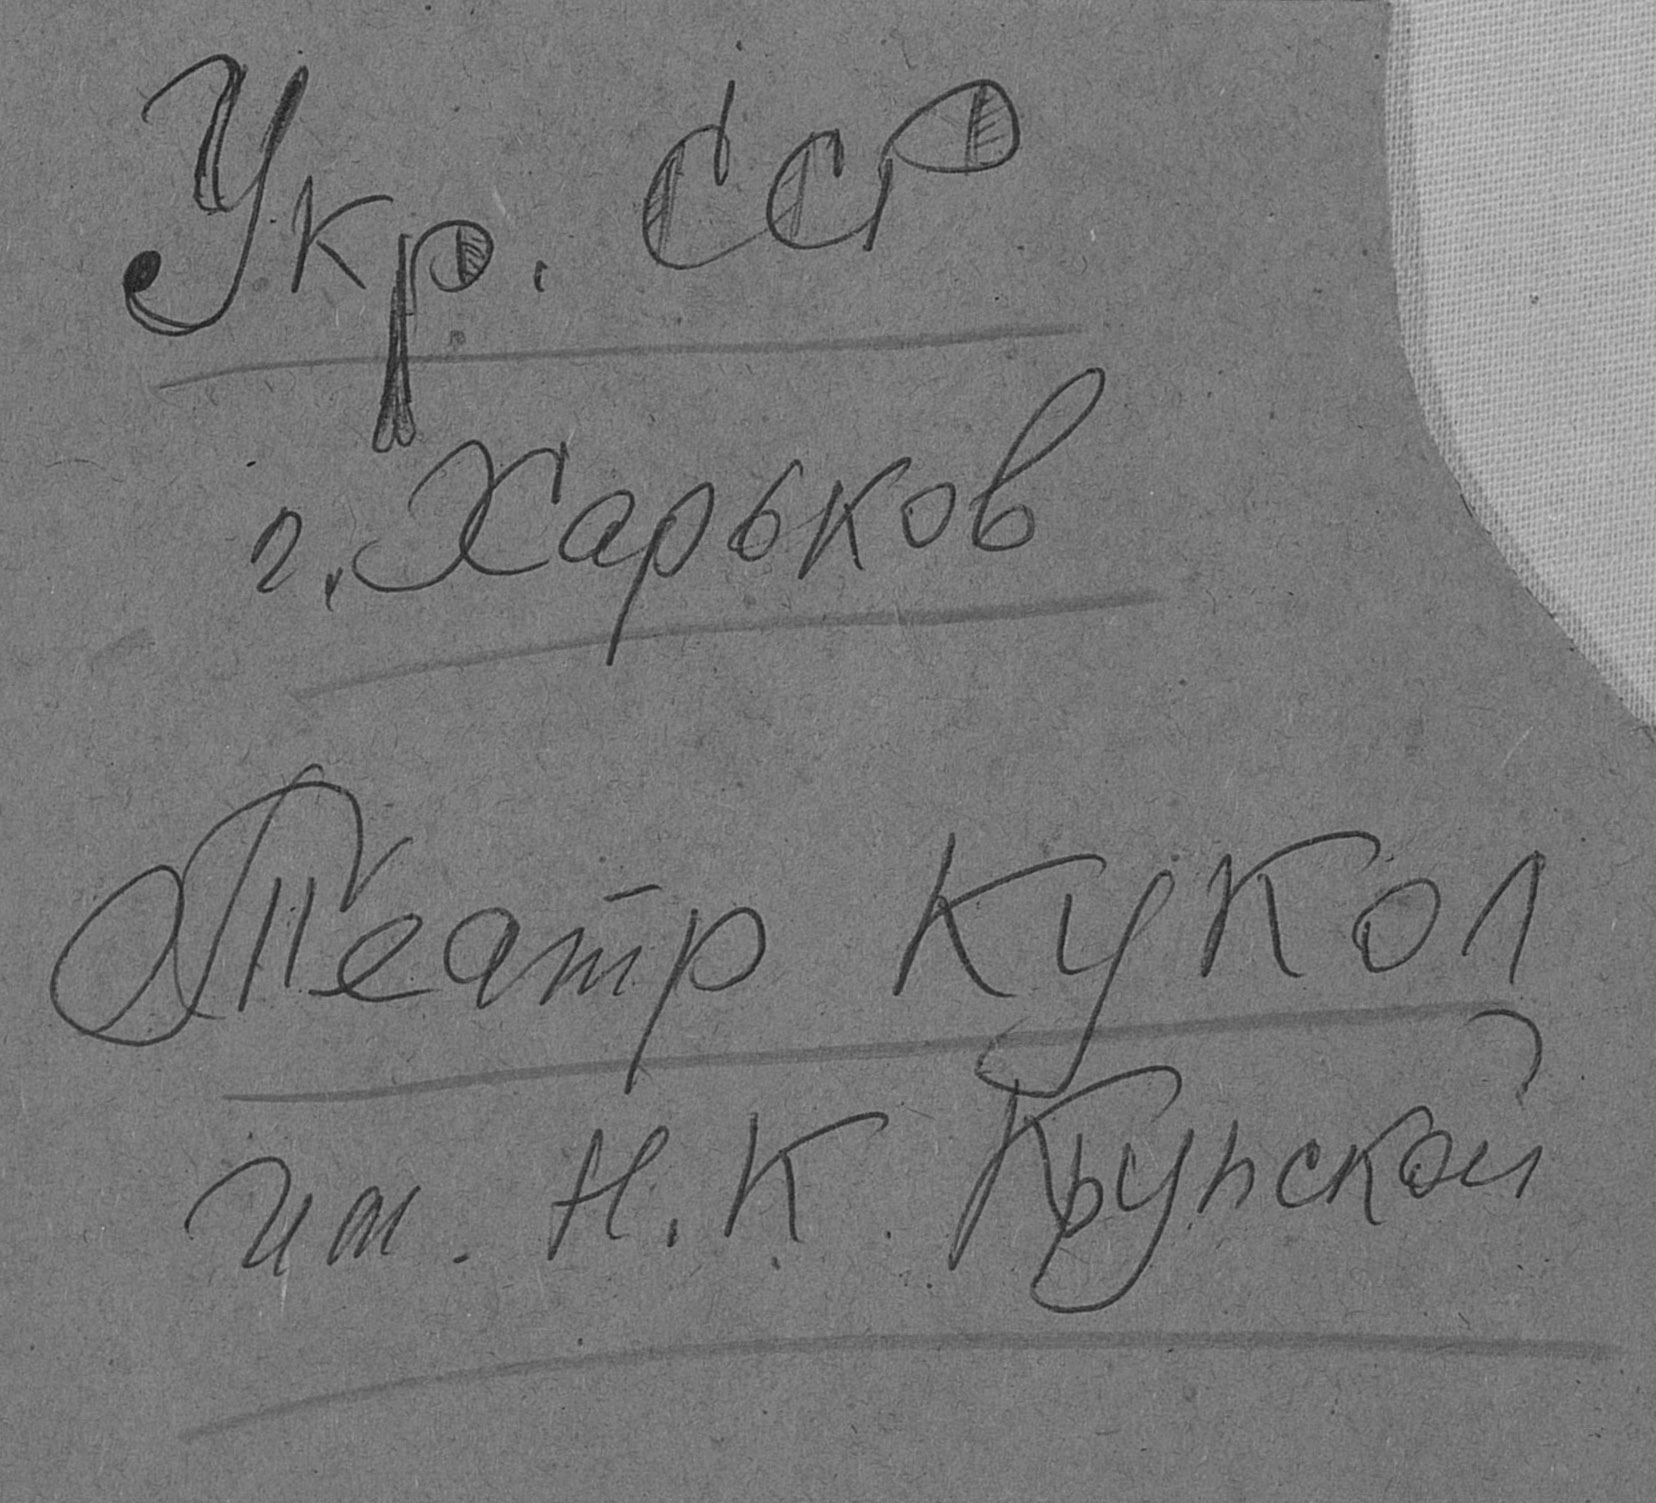 Укр. ССР
г. Харьков
Театр кукол
им. Н.К. Крупской